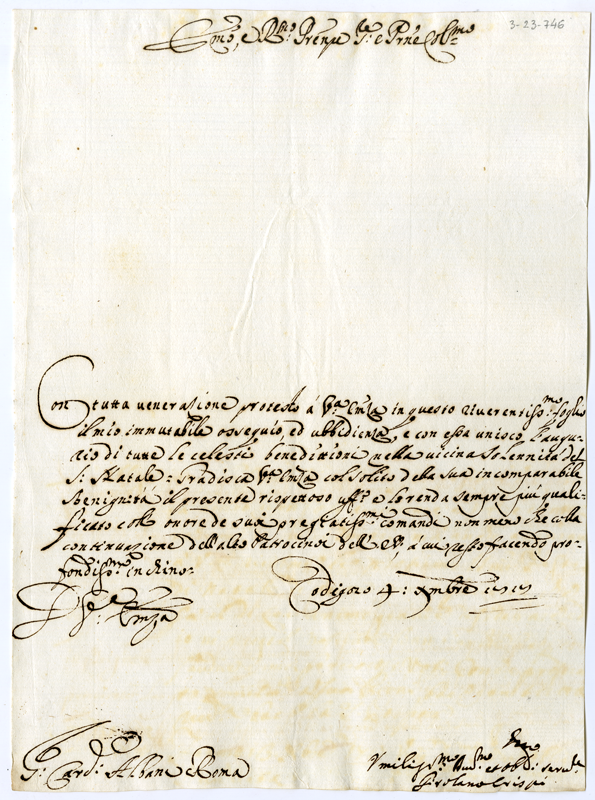 3-23-746
Em.o, e R.mo Prenpe Sig.e e Prñe Col.mo
Con tutta venerazione protesto á V.ra Emza in questo riverentiss.mo foglio
il mio immutabile ossequio, ed ubbidienza, e con essa unisco l'augu-
rio di tutte le celesti benedittioni nella vicina solennità del
S: Natale: Gradisca V.ra Emza col solito della sua incomparabile
Benignità il presente rispettoso uff.o e lo renda sempre piú quali-
ficato coll' onore de suoi pregiatiss.mi comandi non meno che colla
continuazione dell'alto Patrocinio dell' E.V. á cui resto facendo pro-
fondiss.mo inchino.
D V.ra Emza
Codigoro 4: Xmbre
G: Card: Albani Roma
Umiliss.mo Dev.mo et Obb: serv.re
Girolamo Crispi